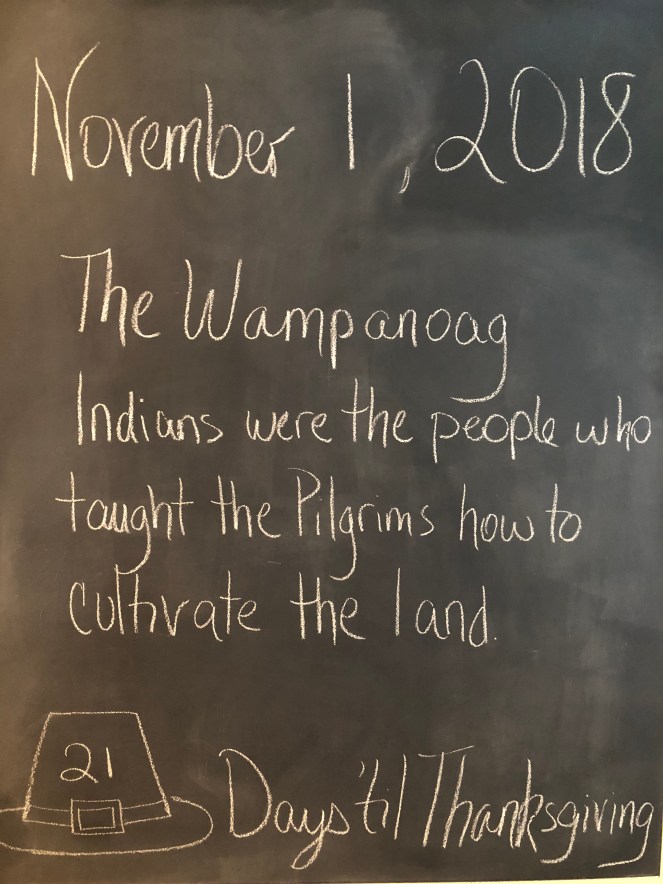 November 1, 2018
The Wampanoag
Indians were the people who
taught the Pilgrims how to
cultivate the land.
21
Days 'til Thanksgiving